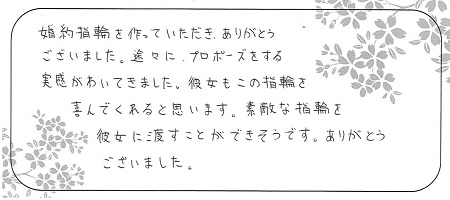 婚約指輪を作っていただき、ありがとう
ございました。途々に、プロポーズをする
実感がわいてきました。彼女もこの指輪を
喜んでくれると思います。素敵な指輪を
彼女に渡すことができそうです。ありがとう
ございました。